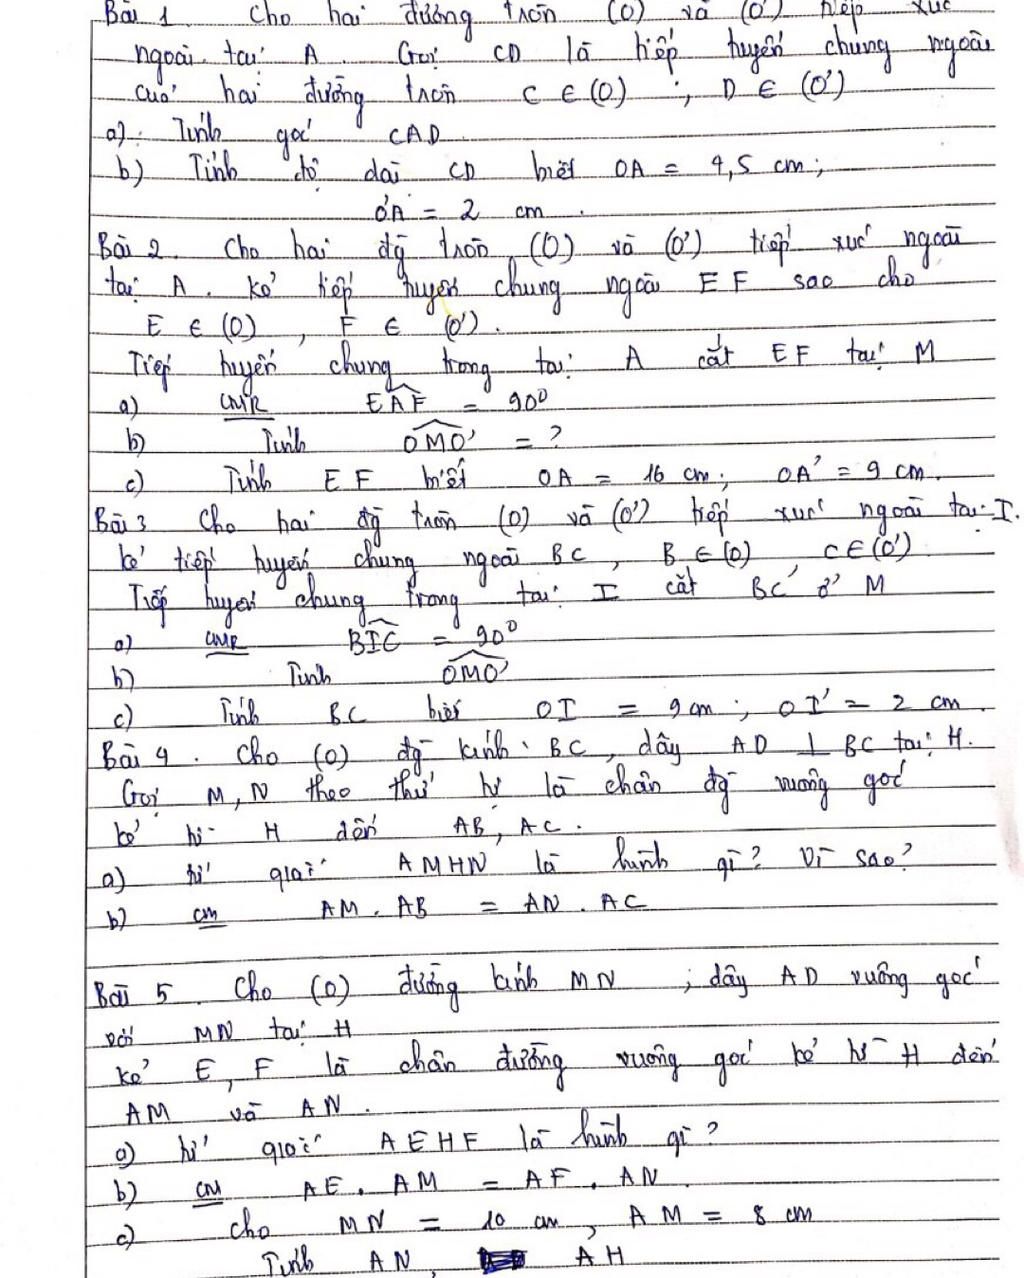 Bài 1 Cho hai đường tròn (O) và (O') tiếp xúc
ngoài tại A. Gọi CD là tiếp tuyến chung ngoài
của hai đường tròn C ∈ (O) ; D ∈ (O')
a). Tính góc CAD
b) Tính độ dài CD biết OA = 4,5 cm;
O'A = 2 cm.
Bài 2. Cho hai đg tròn (O) và (O') tiếp xúc ngoài
tại A. kẻ tiếp tuyến chung ngoài EF sao cho
E ∈ (O), F ∈ (O').
Tiếp tuyến chung trong tại A cắt EF tại M
a) CMR EAF = 90°
b) Tính OMO' = ?
c) Tính EF biết OA = 16 cm; OA' = 9 cm.
Bài 3 Cho hai đg tròn (O) và (O') tiếp xúc ngoài tại I.
kẻ tiếp tuyến chung ngoài BC, B ∈ (O) C ∈ (O')
Tiếp tuyến chung trong tại I cắt BC ở M
a) CMR BIC = 90°
b) Tính OMO'
c) Tính BC biết OI = 9 cm; OI' = 2 cm.
Bài 4. Cho (O) đg kính BC, dây AD ⊥ BC tại H.
Gọi M, N theo thứ tự là chân đg vuông góc
kẻ từ H đến AB, AC.
a) tứ giác AMHN là hình gì? Vì sao?
b) cm AM. AB = AN. AC
Bài 5. Cho (O) đường kính MN ; dây AD vuông góc
với MN tại H
kẻ E, F là chân đường vuông góc kẻ từ H đến
AM và AN.
a) tứ giác AEHF là hình gì?
b) CM AE. AM = AF. AN.
c) cho MN = 10 cm, AM = 8 cm
Tính AN, AH